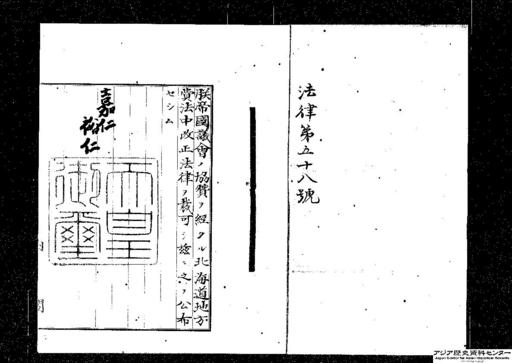 法律第五十八號
朕帝國議會ノ協贊ヲ經タル北海道地方
費法中改正法律ヲ裁可シ茲ニ之ヲ公布
セシム
嘉仁
裕仁
天皇
御璽
内閣
アジア歴史資料センター
Japan Center for Asian Historical Records